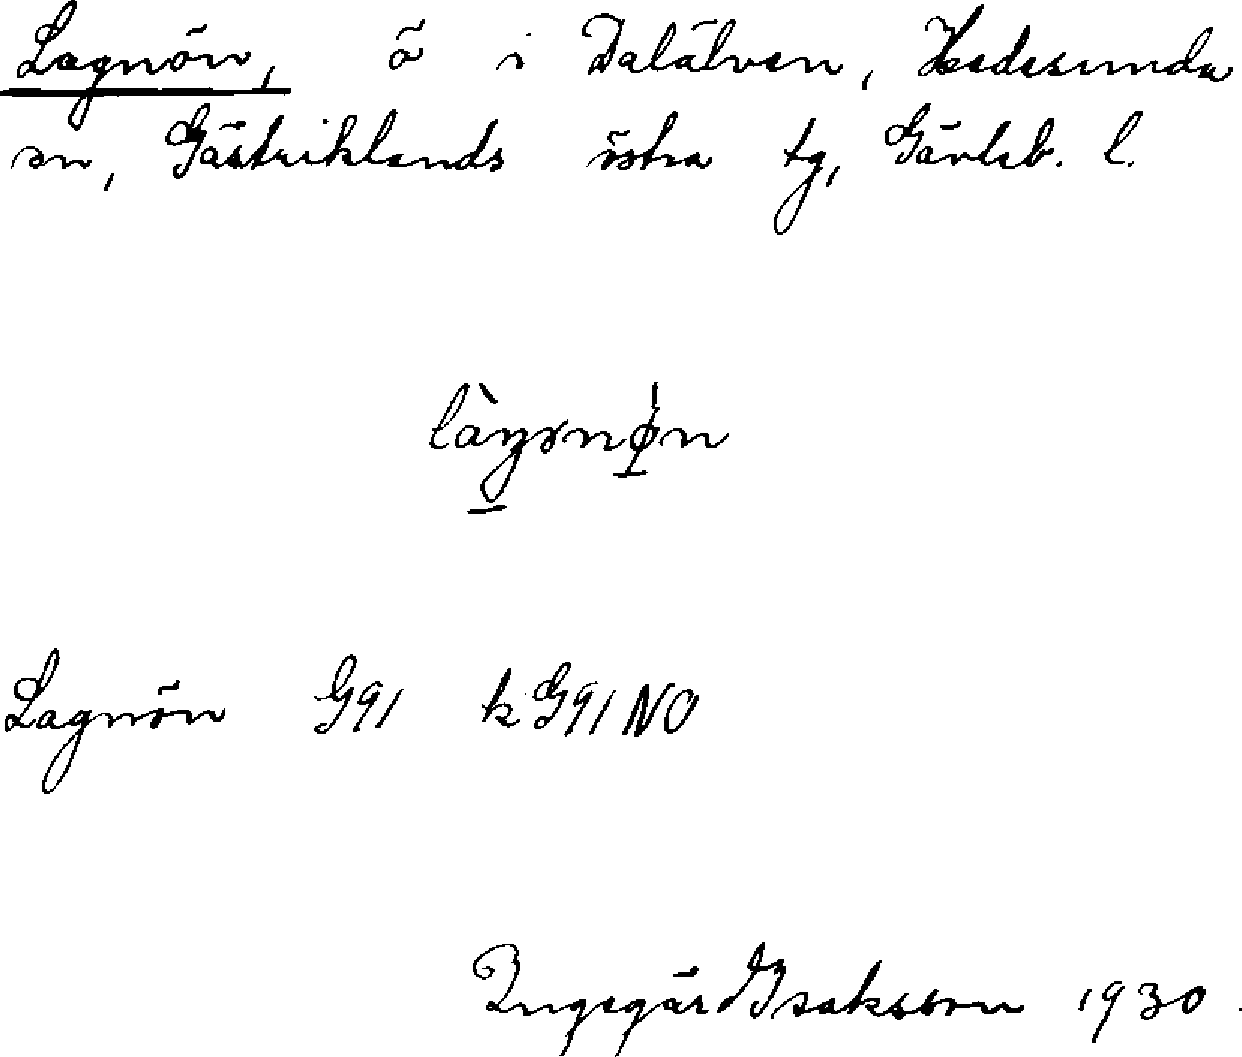 Lagnön, ö i Dalälven, Hedesunda
sn, Gästriklands östra tg, Gävleb. l.
Lagnön G91 k G91 NO
Ingegärd Isaksson 1930.